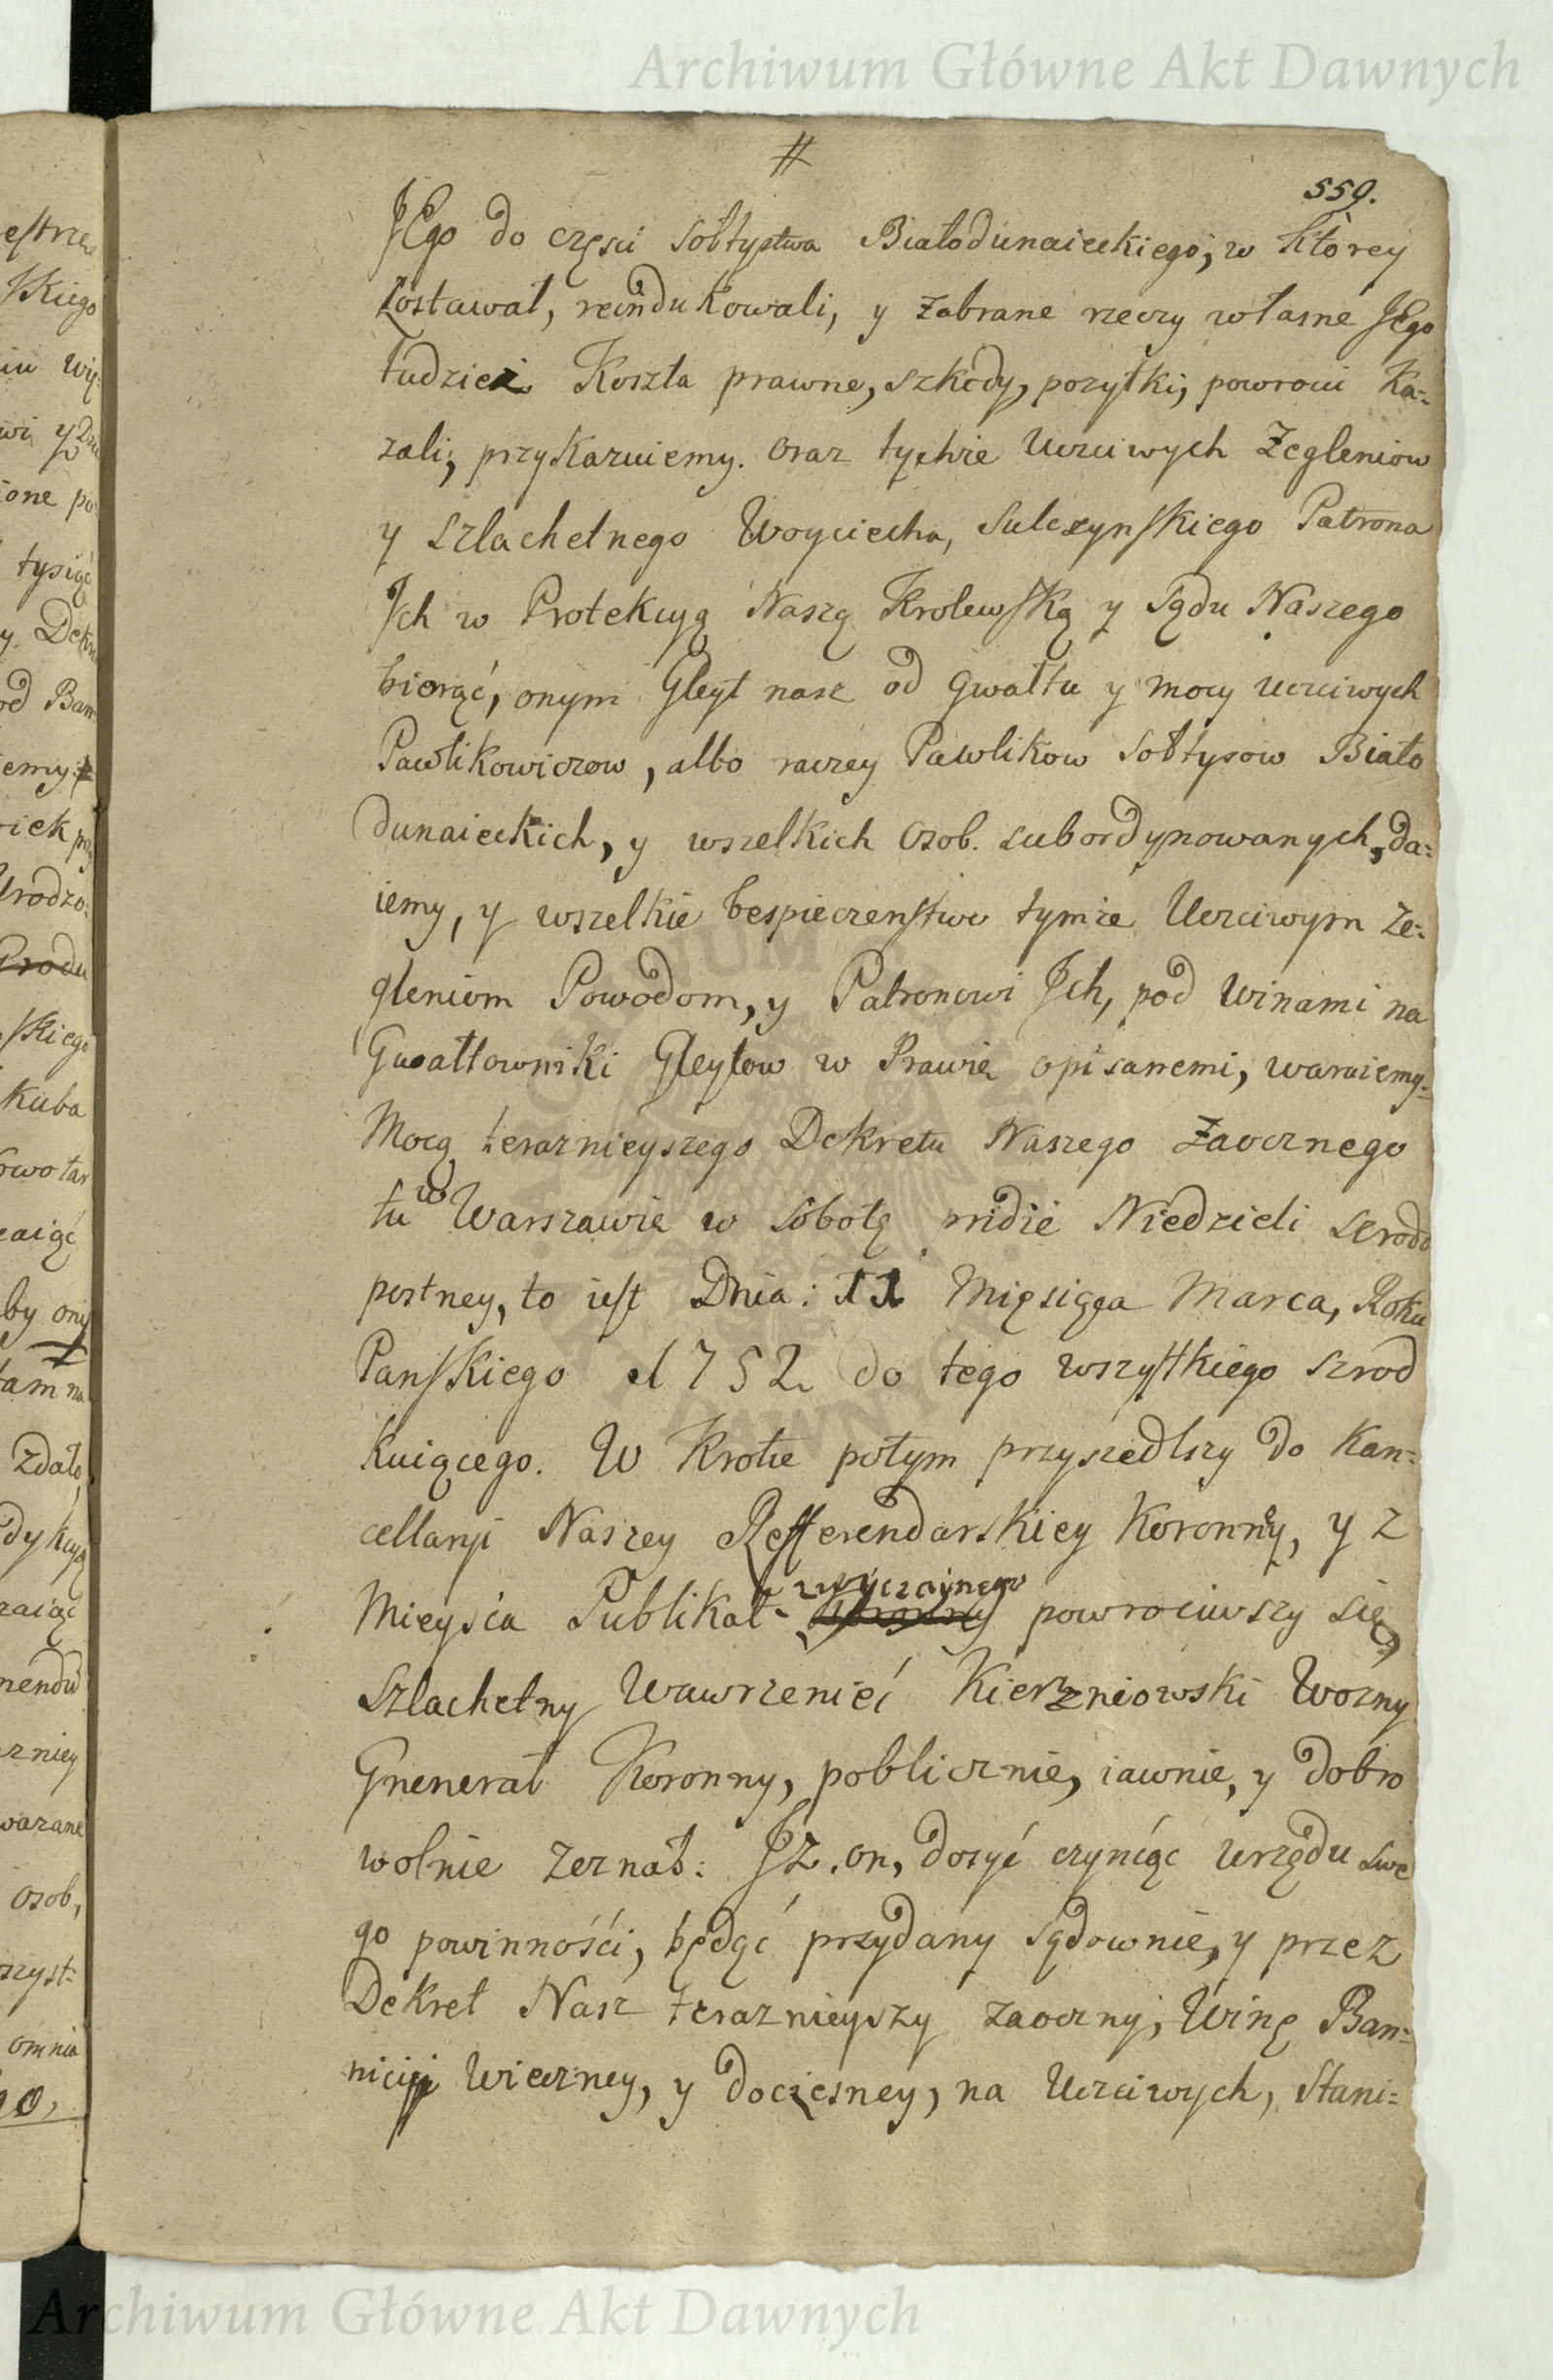 Archiwum Główne Akt Dawnych
#
559.
JEgo do częsci Sołtystwa Białodunaieckiego, w ktorey
zostawał, reindukowali, y zabrane rzeczy własne JEgo
tudziez Koszta prawne, szkody, pozytki, powroci Ka=
zali, przykazuiemy. oraz tychze Uczciwych Zegleniow
y Szlachetnego Woyciecha, Sulczynskiego Patrona
Jch w Protekcyą Naszą Krolewską y Sądu Naszego
biorąć, onym Gleyt nasz od gwałtu y mocy uczciwych
Pawlikowiczow, albo raczey Pawlikow Sołtysow Biało
dunaieckich, y wszelkich Osob. subordynowanych, da=
iemy, y wszelkie bespieczenstwo tymze Uczciwym Ze=
gleniom Powodom, y Patronowi Jch, pod winami na
Gwałtowniki Gleytow w Prawie opisanemi, waruiemy.
Mocą teraznieyszego Dekretu Naszego Zaocznego
tu w Warszawie w Sobotę pridie Niedzieli srodo
postney, to iest Dnia: 11 Mięsiąca Marca, Roku
Panskiego 1752 do tego wszystkiego szrod
kuiącego. W Krotce potym przyszedlszy do Kan=
cellaryi Naszey Refferendarskiey Koronney, y z
Mieysca Publikat zwyczaynego powrociwszy się,
Szlachetny Wawrzenieć Kierzniowski Wozny
Gnenerał Koronny, poblicznie, iawnie, y dobro
wolnie zeznał: JZ. on, dosyć czyniąc urzędu swe
go powinnośći, będąć przydany sądownie, y przez
Dekret Nasz teraznieyszy zaoczny, Winę Ban=
nicyi Wieczney, y doczesney, na Uczciwych, Stani=
Archiwum Główne Akt Dawnych